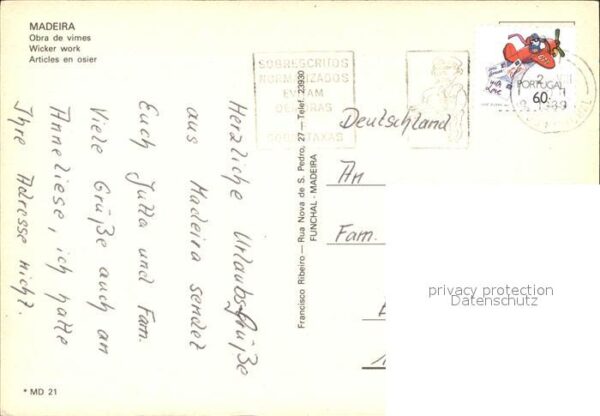 MADEIRA
Obra de vimes
Wicker work
Articles en osier
SOBRESCRITOS
NORMALIZADOS
EVITAM
DEMORAS
SOBRETAXAS
PORTUGAL
60.
Herzliche Urlaubsgrüße
aus Madeira sendet
Euch Jutta und Fam.
Viele Grüße auch an
Anneliese, ich hatte
Ihre Adresse nicht.
Francisco Ribeiro — Rua Nova de S. Pedro, 27 — Telef. 23930
FUNCHAL - MADEIRA
Deutschland
An
Fam.
privacy protection
Datenschutz
* MD 21